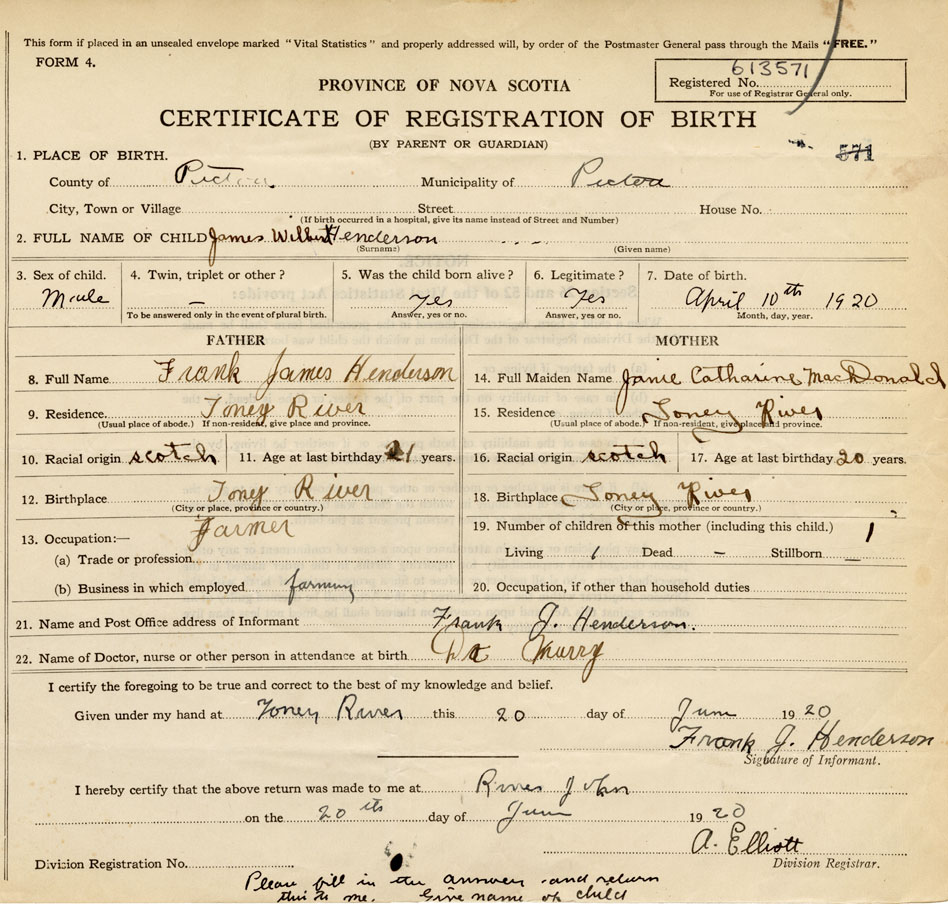 This form if placed in an unsealed envelope marked "Vital Statistics" and properly addressed will, by order of the Postmaster General pass through the Mails "FREE."
FORM 4.
Registered No. 613571
For use of Registrar General only.
PROVINCE OF NOVA SCOTIA
CERTIFICATE OF REGISTRATION OF BIRTH
(BY PARENT OR GUARDIAN)
571
1. PLACE OF BIRTH.
County of Pictou Municipality of Pictou
City, Town or Village Street House No.
(If birth occurred in a hospital, give its name instead of Street and Number)
2. FULL NAME OF CHILD James Wilbert Henderson
(Surname) (Given name)
3. Sex of child. 4. Twin, triplet or other? 5. Was the child born alive? 6. Legitimate? 7. Date of birth.
Male — Yes Yes April 10th 1920
To be answered only in the event of plural birth. Answer, yes or no. Answer, yes or no. Month, day, year.
FATHER
8. Full Name Frank James Henderson
9. Residence Toney River
(Usual place of abode.) If non-resident, give place and province.
10. Racial origin scotch 11. Age at last birthday 21 years.
12. Birthplace Toney River
(City or place, province or country.)
Farmer
13. Occupation:—
(a) Trade or profession
(b) Business in which employed farming
MOTHER
14. Full Maiden Name Janie Catharine MacDonald
15. Residence Toney River
(Usual place of abode.) If non-resident, give place and province.
16. Racial origin scotch 17. Age at last birthday 20 years.
18. Birthplace Toney River
(City or place, province or country.)
19. Number of children of this mother (including this child.) 1
Living 1 Dead — Stillborn —
20. Occupation, if other than household duties
21. Name and Post Office address of Informant Frank J. Henderson.
22. Name of Doctor, nurse or other person in attendance at birth Dr Murry
I certify the foregoing to be true and correct to the best of my knowledge and belief.
Given under my hand at Toney River this 20 day of June 1920
Frank J. Henderson
Signature of Informant.
I hereby certify that the above return was made to me at River John
on the 20th day of June 1920
A. Elliott
Division Registrar.
Division Registration No.
Please fill in the answers and return
this to me. Give name of child